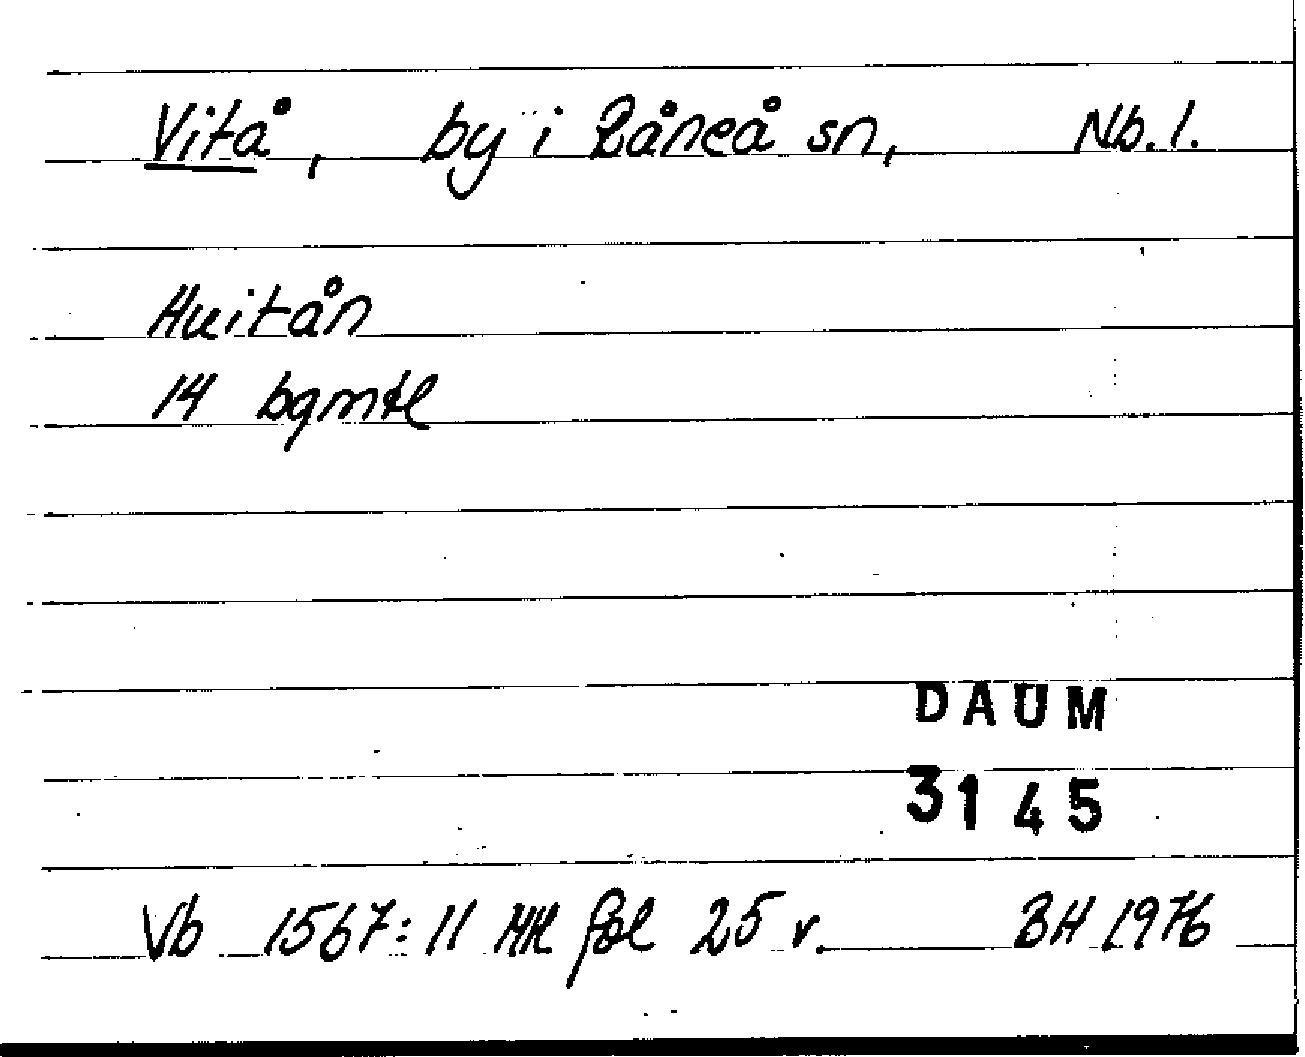 Vitå, by i Råneå sn, Nb. l.
Huitån
14 bgmtl
DAUM
3145
Vb 1567:11 MR fol 25 v. BH 1976